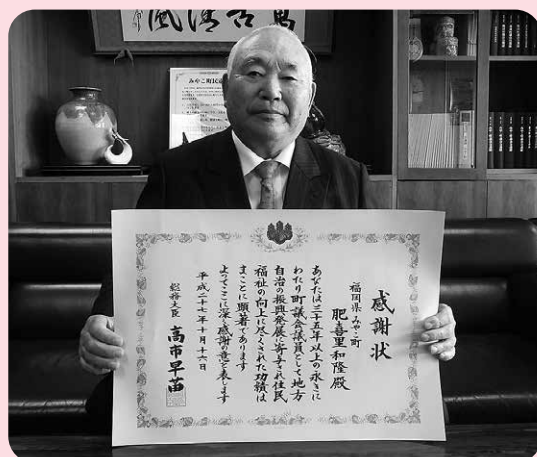 萬古清風
みやこ町民憲章
感謝状
福岡県みやこ町
肥喜里和隆殿
あなたは三十五年以上の永きに
わたり町議会議員として地方
自治の振興発展に寄与され住民
福祉の向上に尽くされた功績は
まことに顕著であります
よってここに深く感謝の意を表します
平成二十七年十月十六日
総務大臣 高市早苗